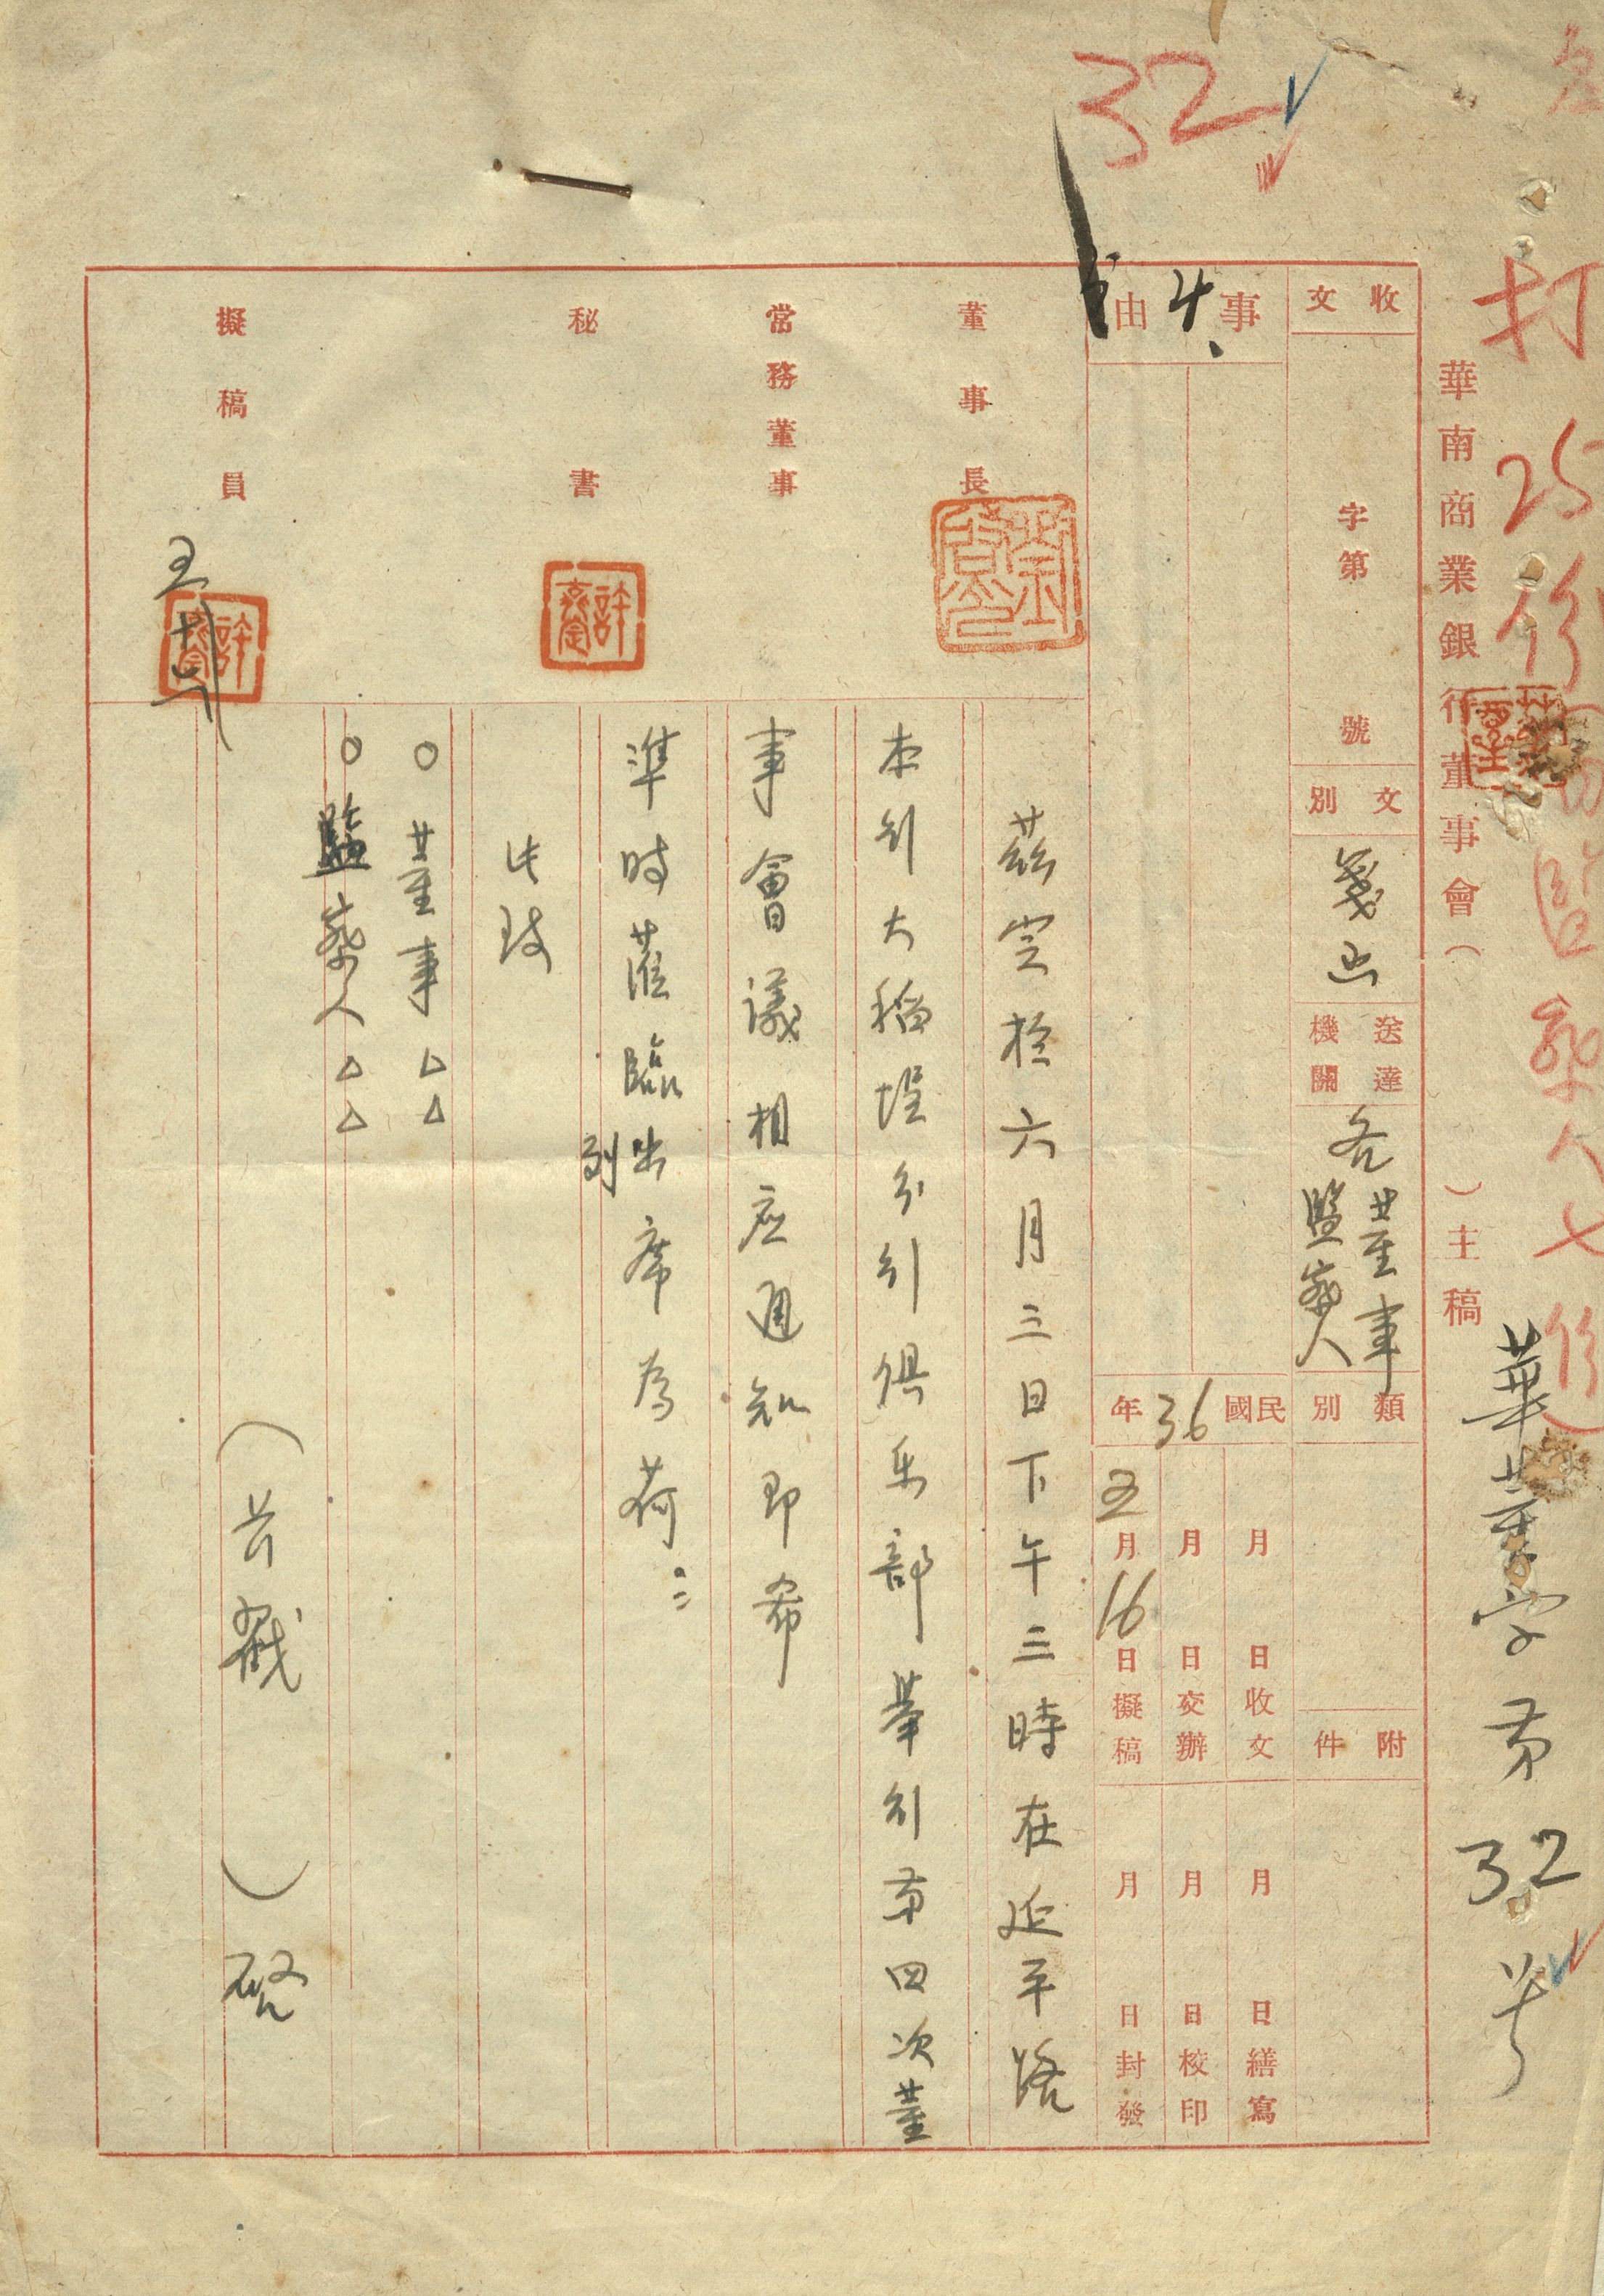 32
打25份 監察人七份
華南商業銀行董事會（　）主稿
華董字第32号
收文
字第　號
文別
箋函
送達機關
各董事
監察人
類別
附件
事由
4、
民國36年
月　日收文
月　日交辦
五月16日擬稿
月　日繕寫
月　日校印
月　日封發
董事長
常務董事
秘書
許
擬稿員
許
茲定於六月三日下午三時在延平路
本行大稻埕分行俱乐部舉行第四次董
事會議相应通知即希
準時蒞臨出席為荷
列
此致
○董事△△
○監察人△△
（長戳）啓